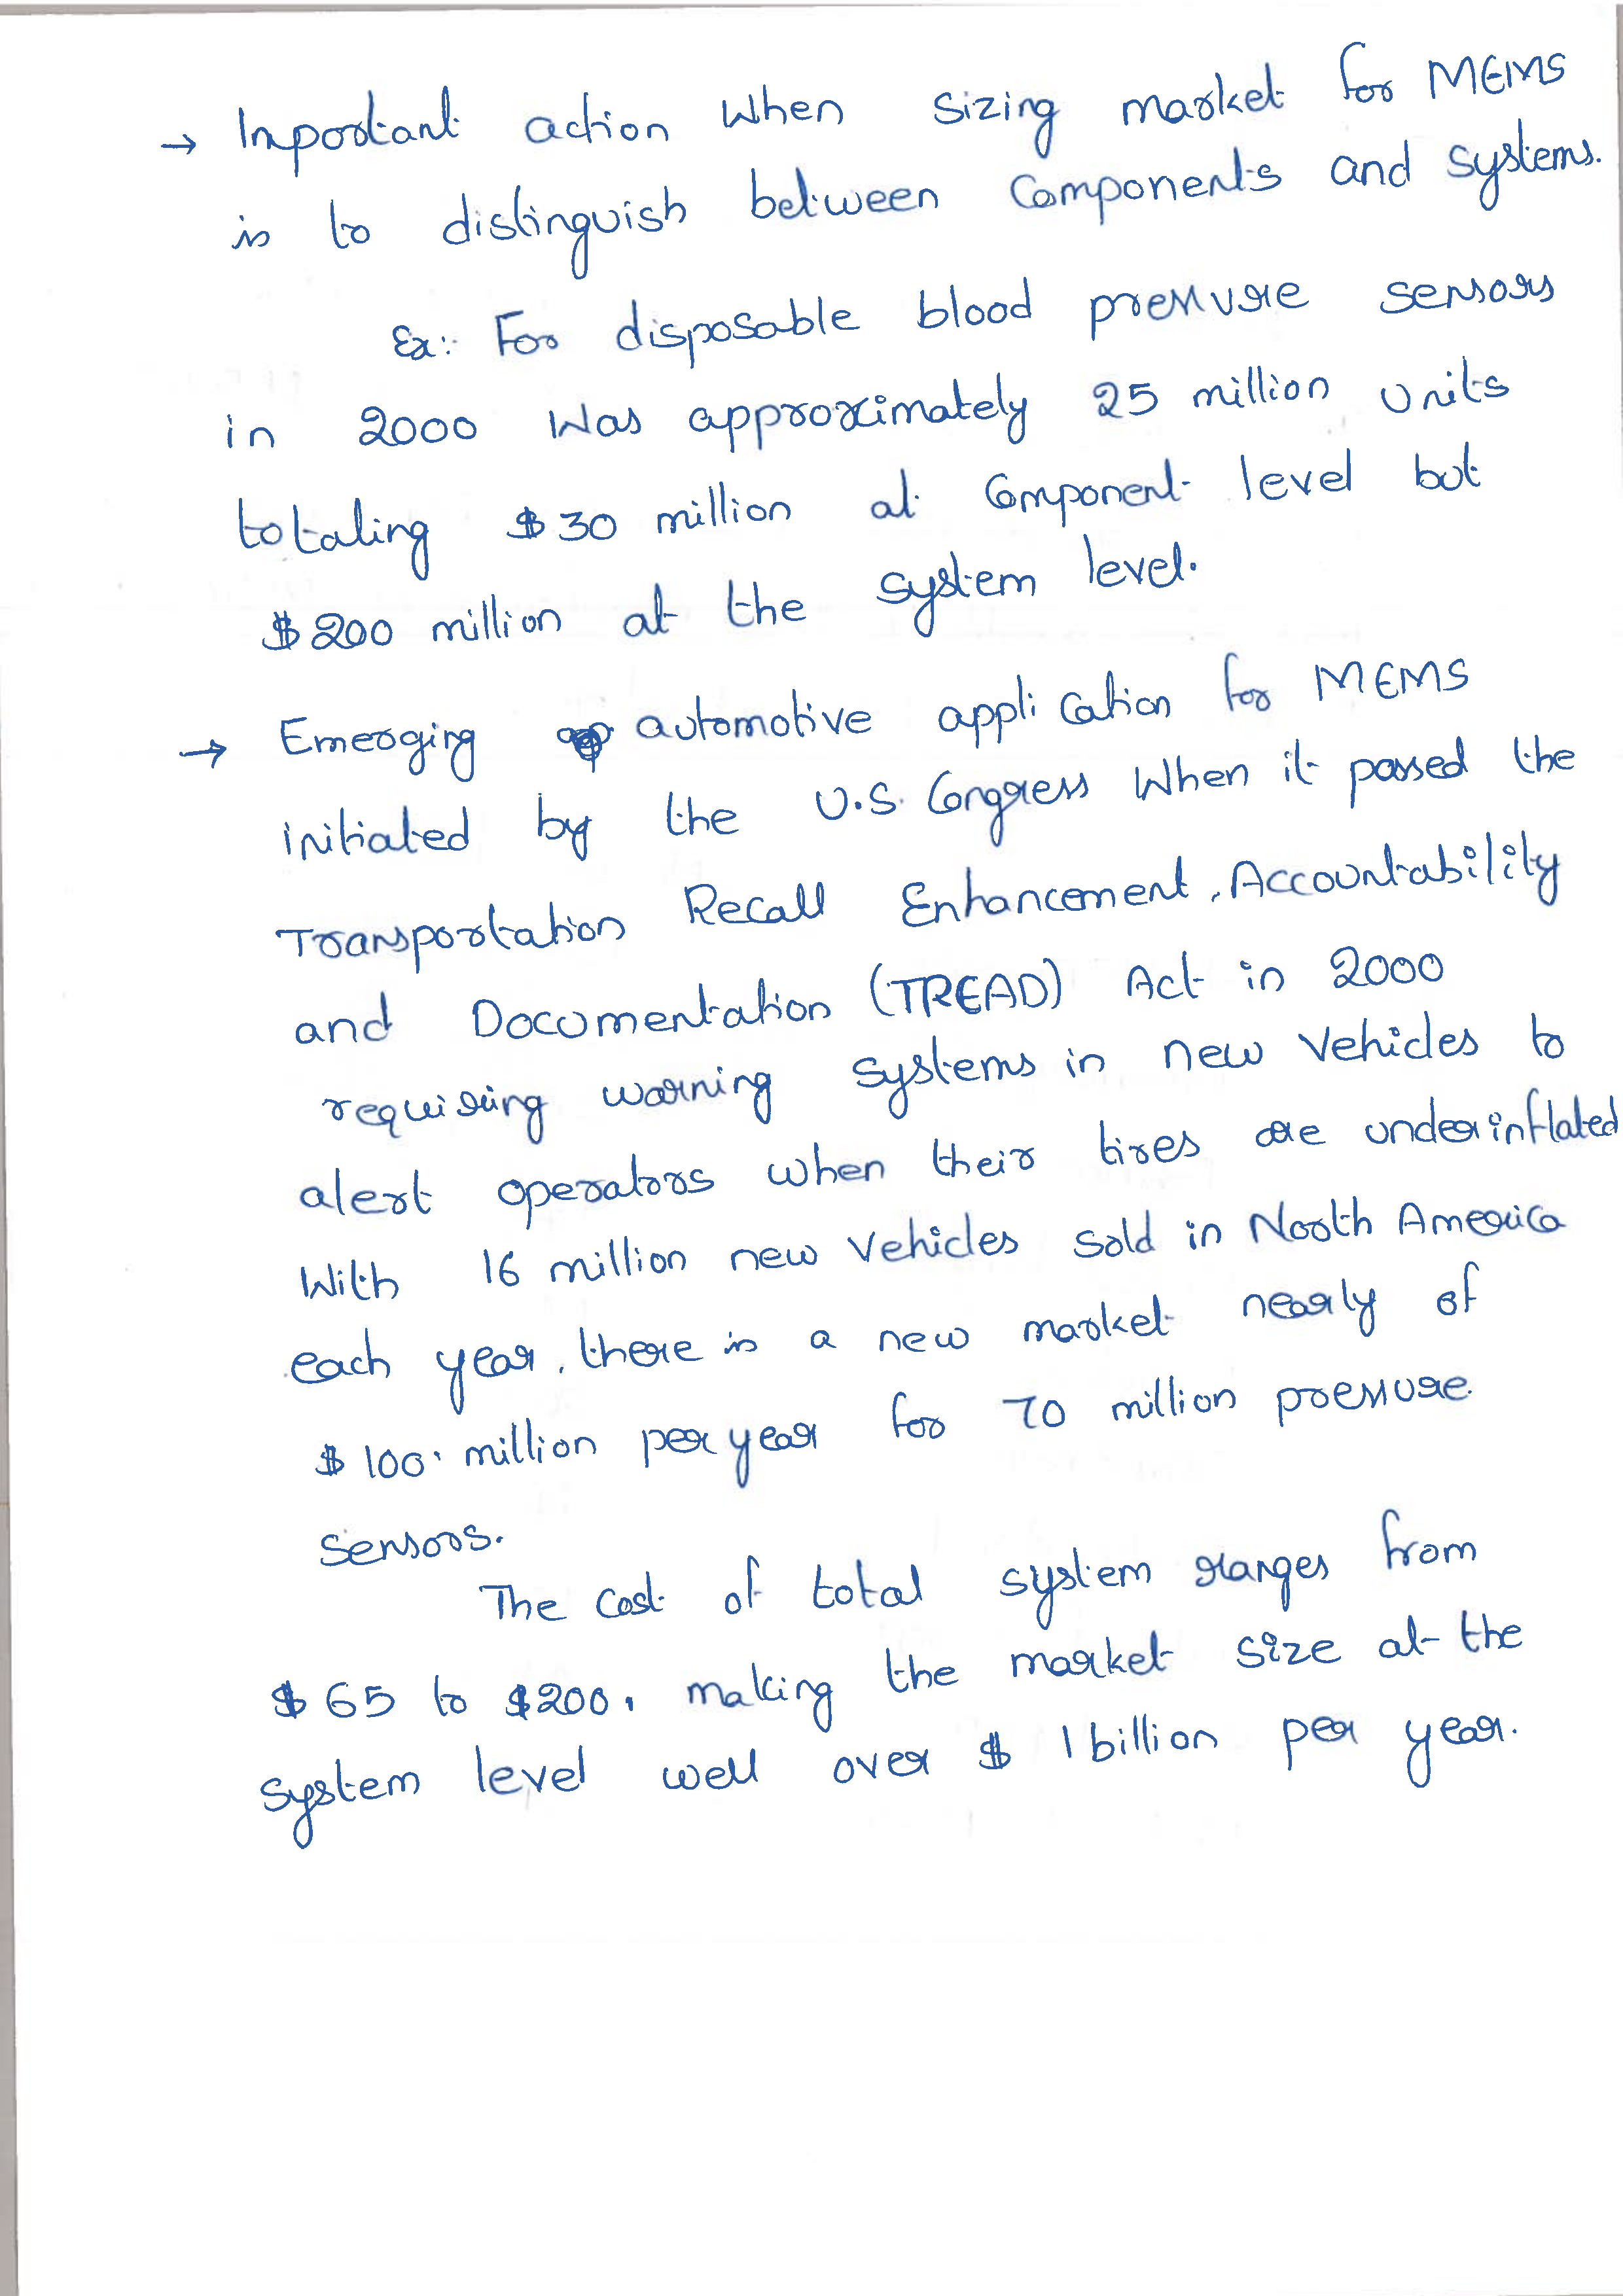 → Inportant action when sizing market for MEMS
is to distinguish between components and systems.
Ex:- For disposable blood pressure sensors
in 2000 was approximately 25 million units
totaling $30 million at component level but
$200 million at the system level.
→ Emerging automotive application for MEMS
initiated by the U.S. Congress when it passed the
Transportation Recall Enhancement, Accountability
and Documentation (TREAD) Act in 2000
requiring warning systems in new vehicles to
alert operators when their tires are underinflated
With 16 million new vehicles sold in North America
each year, there is a new market nearly of
$100 million per year for 70 million pressure
sensors.
The cost of total system ranges from
$65 to $200, making the market size at the
system level well over $1 billion per year.